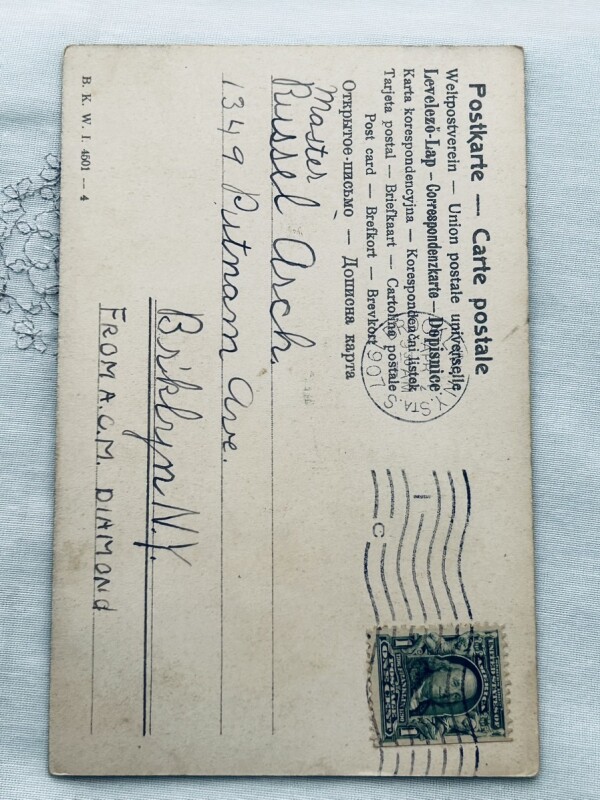 Postkarte — Carte postale
Weltpostverein — Union postale universelle
Levelező-Lap — Correspondenzkarte — Dopisnice
Karta korespondencyjna — Korespondenční listek
Tarjeta postal — Briefkaart — Cartolina postale
Post card — Brefkort — Brevkort
Открытое-письмо — Дописна карта
STA.
1907
C
UNITED STATES OF
AMERICA
1 1
Master
Russel Arch.
1349 Putnam Ave.
Briklyn N.Y.
FROM A.C.M. DIAMOND
B. K. W. I. 4501 — 4